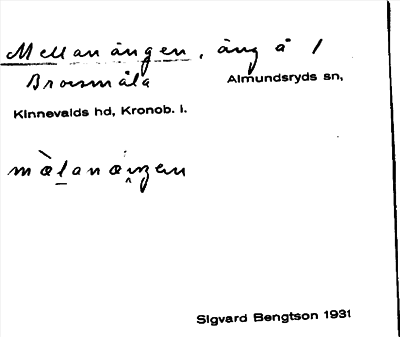 Mellanängen, äng å 1
Brossmåla Almundsryds sn,
Kinnevalds hd, Kronob. l.
mæ̀lanæŋen
Sigvard Bengtson 1931